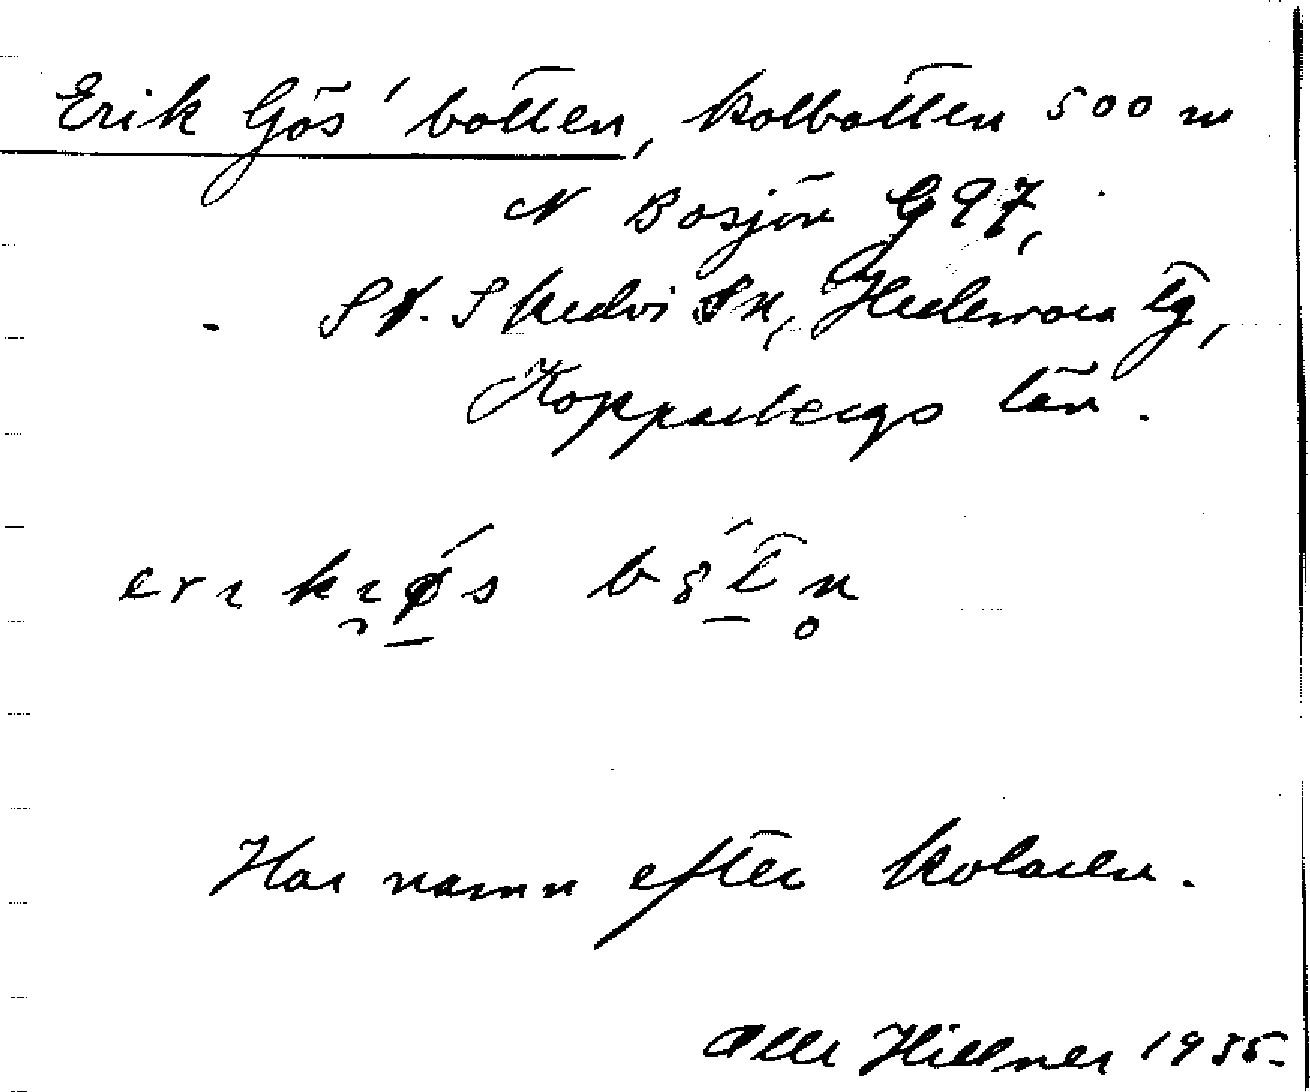 Erik Gös' botten, kolbotten 500 m
N Bosjön G 97,
St. Skedvi Sn, Hedemora tg,
Kopparbergs län.
Har namn efter kolaren.
Olle Hillner 1935.